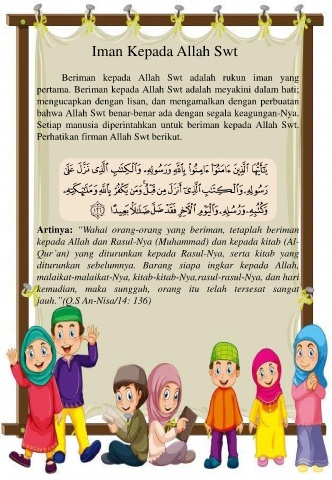 Iman Kepada Allah Swt
Beriman kepada Allah Swt adalah rukun iman yang
pertama. Beriman kepada Allah Swt adalah meyakini dalam hati;
mengucapkan dengan lisan, dan mengamalkan dengan perbuatan
bahwa Allah Swt benar-benar ada dengan segala keagungan-Nya.
Setiap manusia diperintahkan untuk beriman kepada Allah Swt.
Perhatikan firman Allah Swt berikut.
يَٰٓأَيُّهَا ٱلَّذِينَ ءَامَنُوٓا۟ ءَامِنُوا۟ بِٱللَّهِ وَرَسُولِهِۦ وَٱلْكِتَٰبِ ٱلَّذِى نَزَّلَ عَلَىٰ
رَسُولِهِۦ وَٱلْكِتَٰبِ ٱلَّذِىٓ أَنزَلَ مِن قَبْلُ ۚ وَمَن يَكْفُرْ بِٱللَّهِ وَمَلَٰٓئِكَتِهِۦ
وَكُتُبِهِۦ وَرُسُلِهِۦ وَٱلْيَوْمِ ٱلْءَاخِرِ فَقَدْ ضَلَّ ضَلَٰلًۢا بَعِيدًا ﴿١٣٦﴾
Artinya: “Wahai orang-orang yang beriman, tetaplah beriman
kepada Allah dan Rasul-Nya (Muhammad) dan kepada kitab (Al-
Qur’an) yang diturunkan kepada Rasul-Nya, serta kitab yang
diturunkan sebelumnya. Barang siapa ingkar kepada Allah,
malaikat-malaikat-Nya, kitab-kitab-Nya,rasul-rasul-Nya, dan hari
kemudian, maka sungguh, orang itu telah tersesat sangat
jauh.”(Q.S An-Nisa/14: 136)